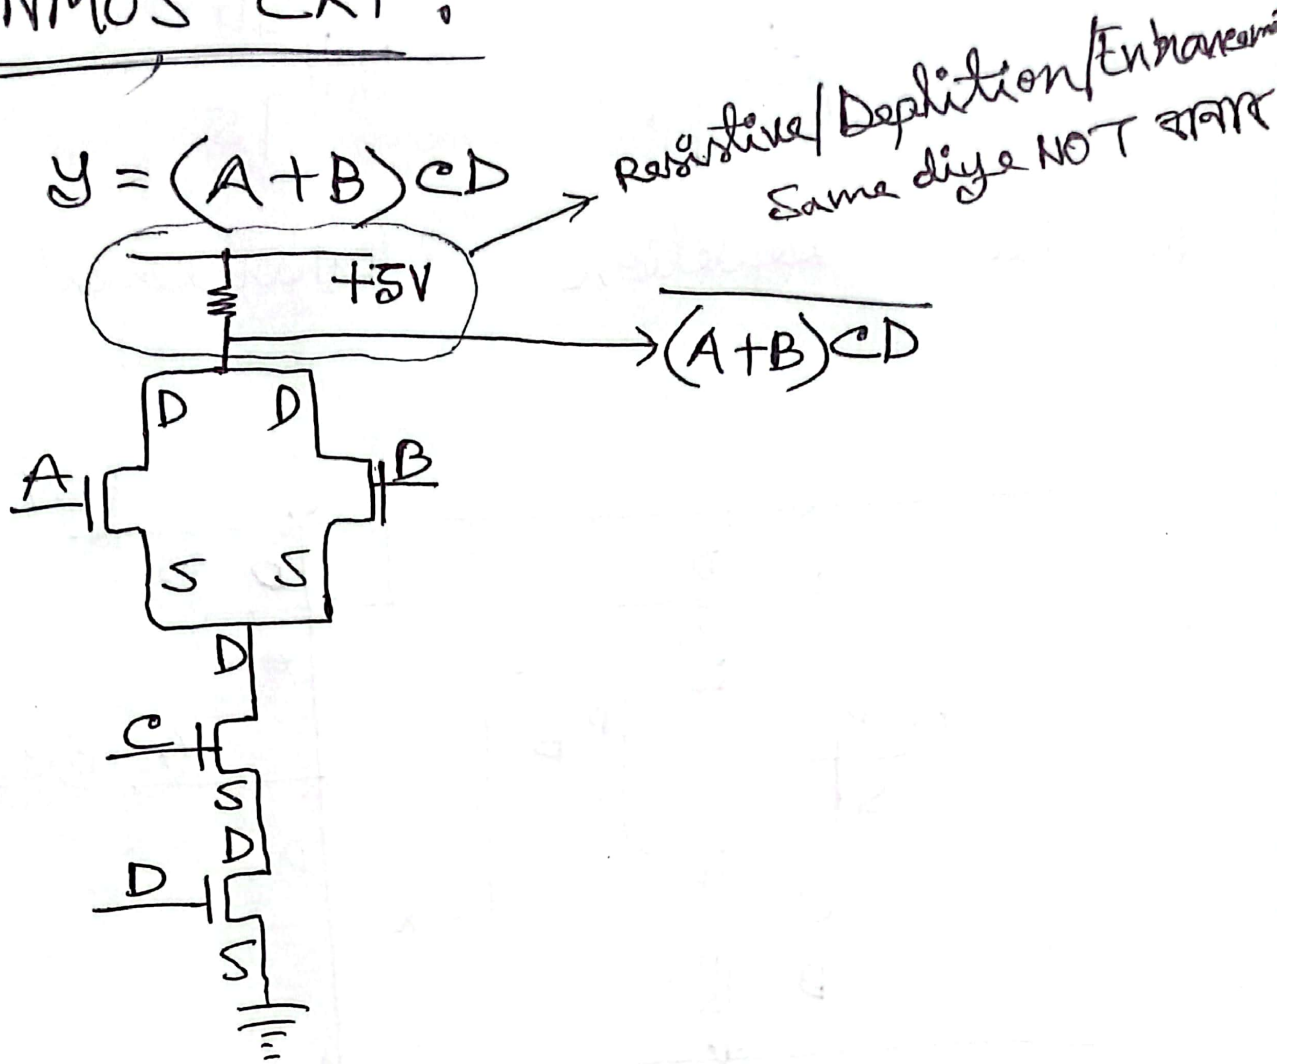 NMOS CKT :
Resistive/Deplition/Enhancem
Same diye NOT বানাব
y = (A+B)CD
+5V
(A+B)CD
D D
A B
S S
D
C
S
D
D
S